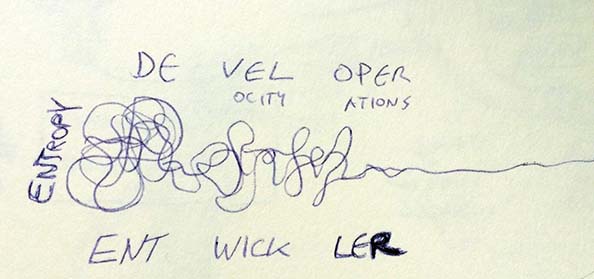 DE VEL OPER
OCITY ATIONS
ENTROPY
ENT WICK LER